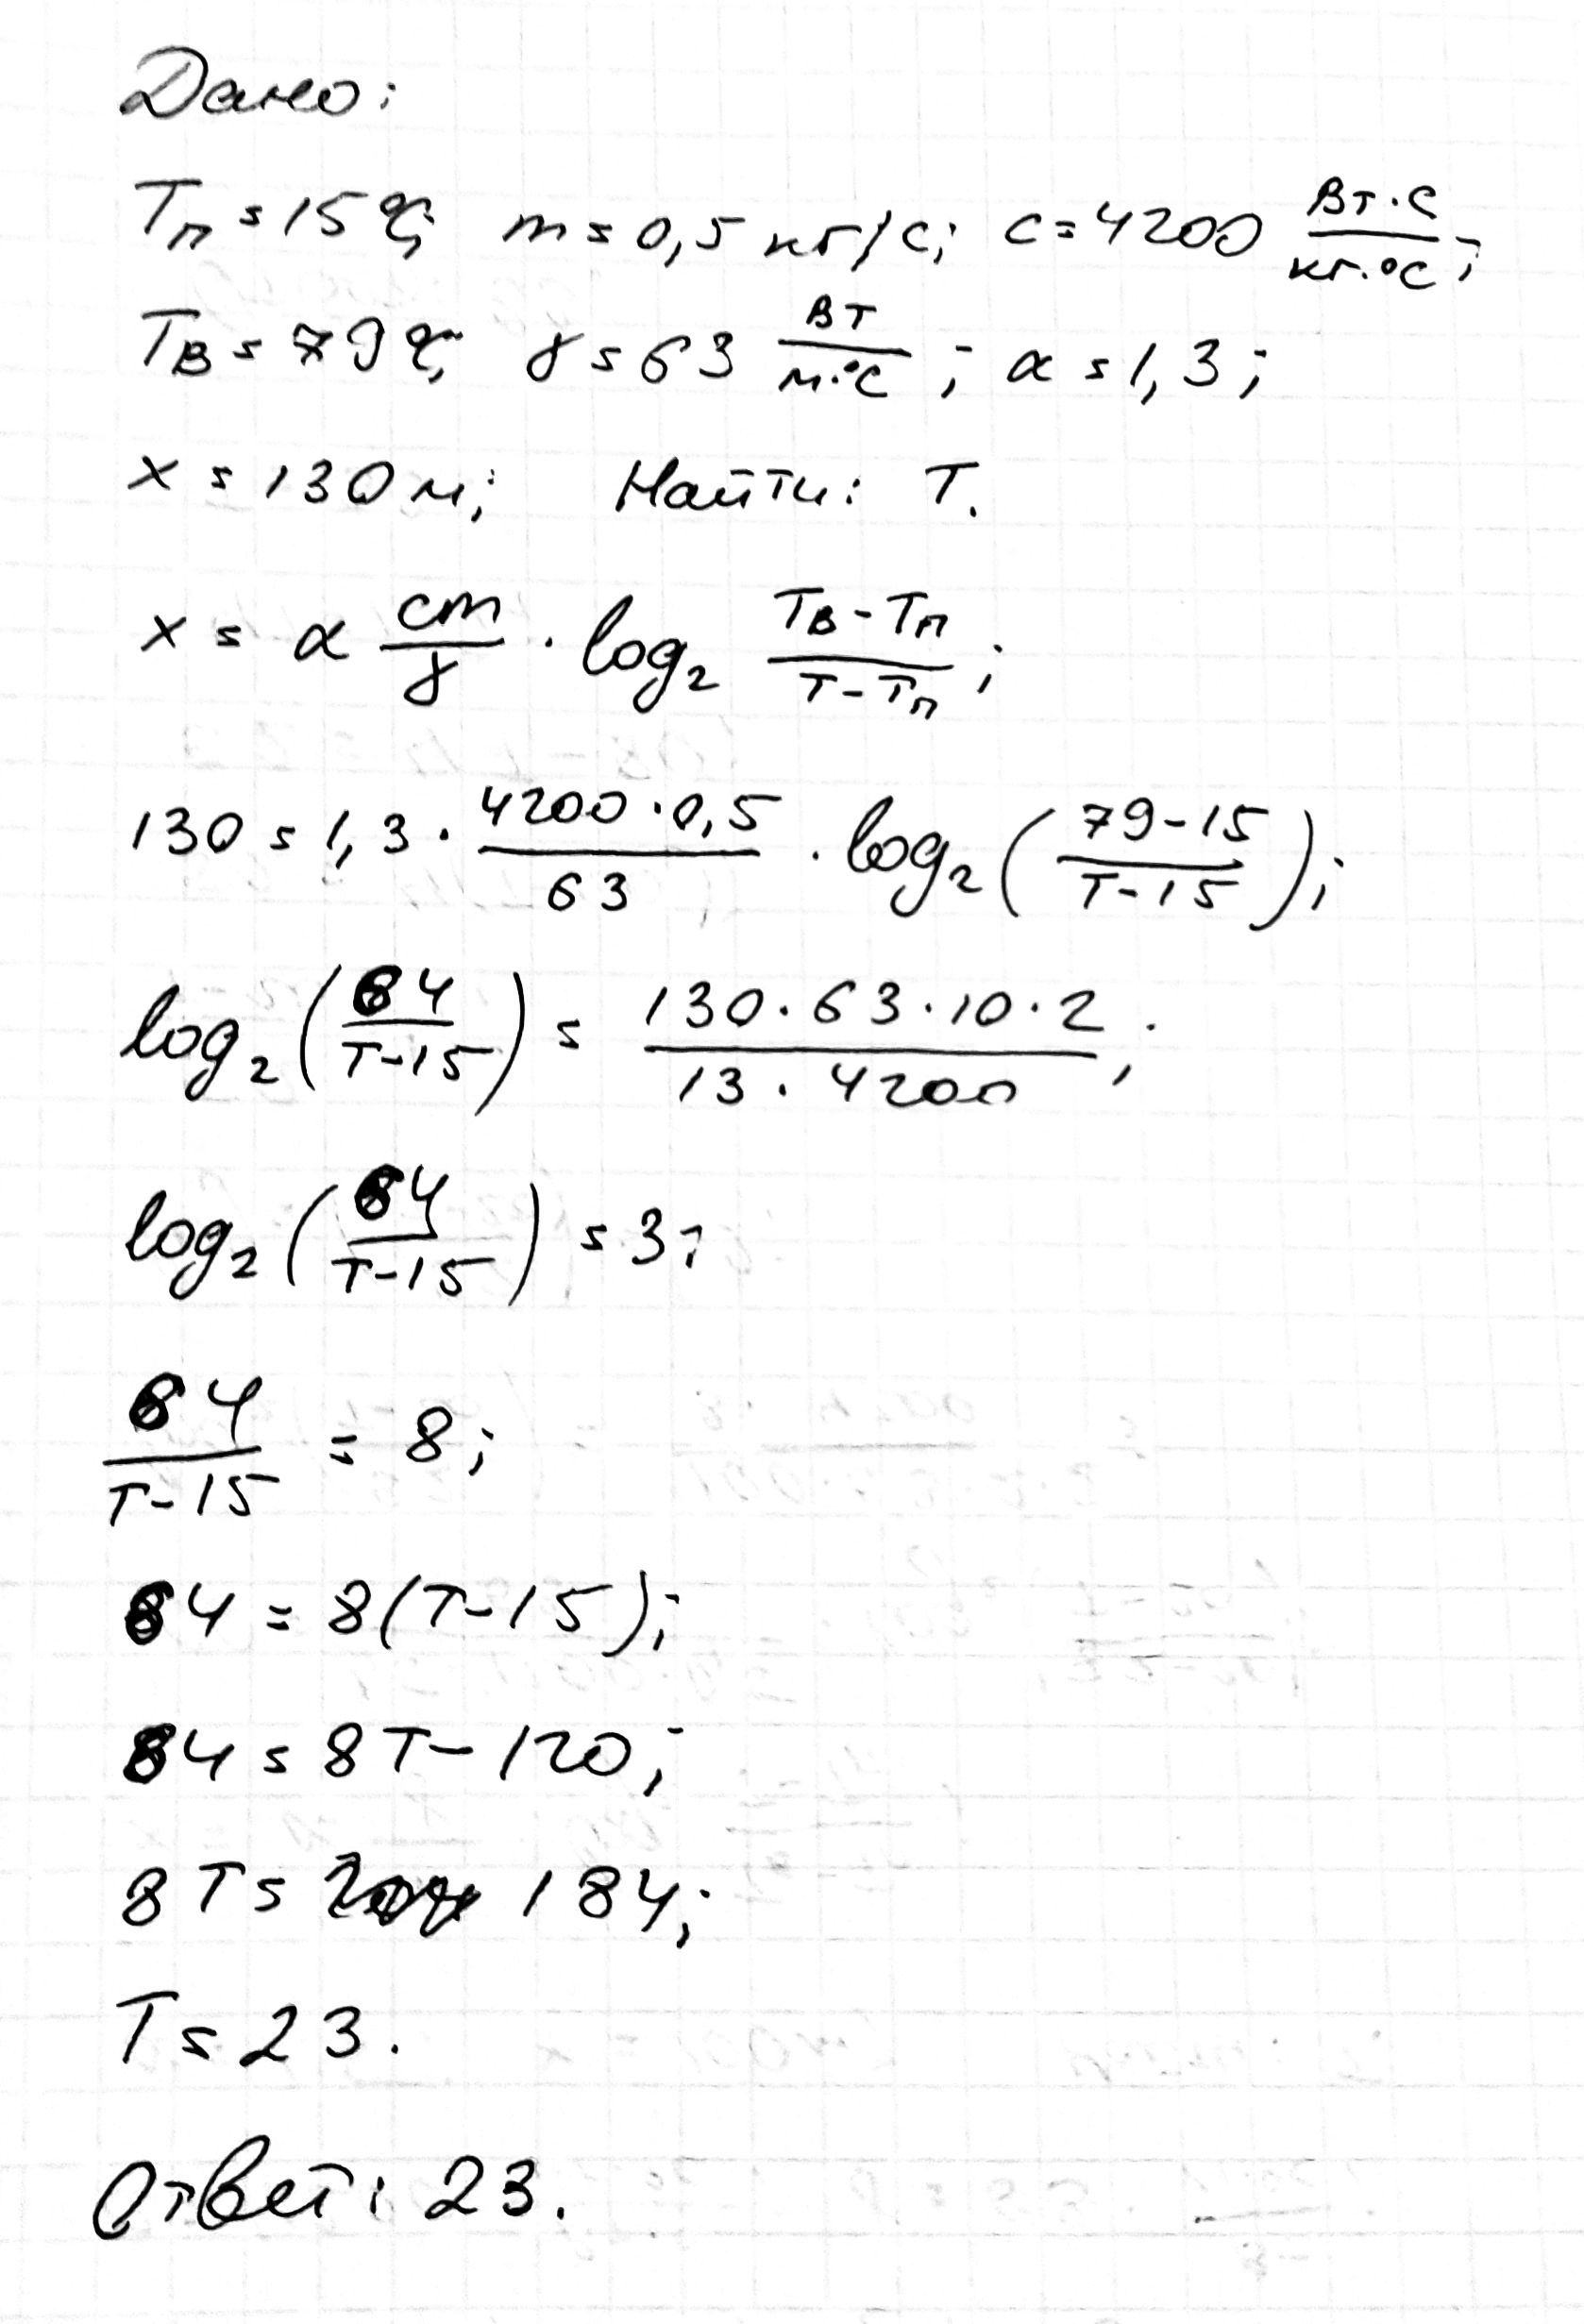 Дано:
Tп = 15 °C; m = 0,5 кг/с; c = 4200 Вт·с/кг·°C;
Tв = 79 °C; γ = 63 Вт/м·°C; α = 1,3;
x = 130 м; Найти: T.
x = α cm/γ · log₂ (Tв - Tп)/(T - Tп);
130 = 1,3 · (4200 · 0,5)/63 · log₂((79 - 15)/(T - 15));
log₂(64/(T - 15)) = (130 · 63 · 10 · 2)/(13 · 4200);
log₂(64/(T - 15)) = 3;
64/(T - 15) = 8;
64 = 8(T - 15);
64 = 8T - 120;
8T = 184;
T = 23.
Ответ: 23.